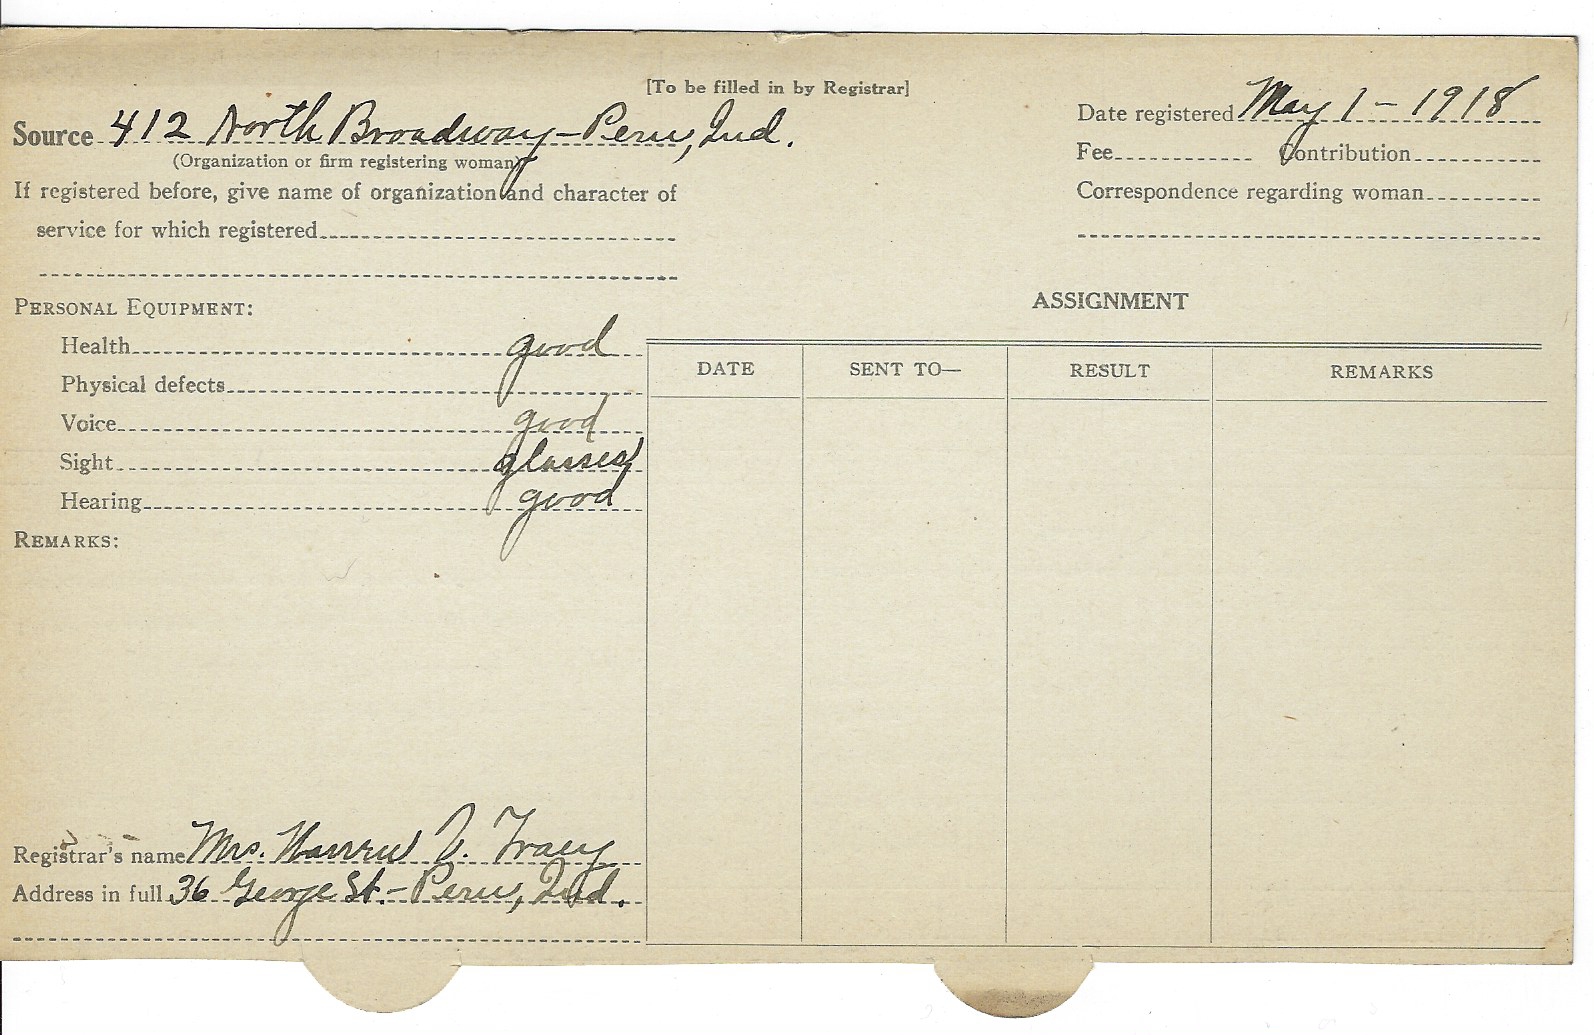 [To be filled in by Registrar]
Source 412 North Broadway - Peru, Ind.
(Organization or firm registering woman)
If registered before, give name of organization and character of
service for which registered
Date registered May 1 - 1918
Fee Contribution
Correspondence regarding woman
PERSONAL EQUIPMENT:
Health good
Physical defects
Voice good
Sight glasses
Hearing good
REMARKS:
Registrar's name Mrs. Tracy
Address in full 36 George St. - Peru, Ind.
ASSIGNMENT
DATE SENT TO— RESULT REMARKS